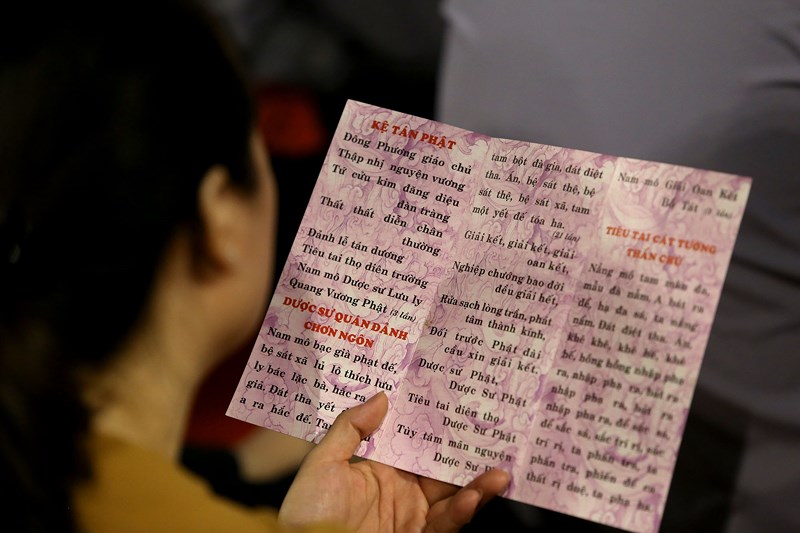 KỆ TÁN PHẬT
Đông Phương giáo chủ
Thập nhị nguyện vương
Tứ cửu kim đăng diệu
đàn tràng
Thất thất diễn chân
thường
Đảnh lễ tán dương
Tiêu tai thọ diên trường
Nam mô Dược sư Lưu ly
Quang Vương Phật (3 lần)
DƯỢC SƯ QUÁN ĐẢNH
CHƠN NGÔN
Nam mô bạc già phạt đế,
bệ sát xã lủ lô thích lưu
ly bác lặc bà, hắc ra
giả. Đát tha yết
a ra hắc đế. Tam
tam bột đà gia, đát điệt
tha. Án, bệ sát thệ, bệ
sát thệ, bệ sát xã, tam
một yết đế tóa ha.
(21 lần)
Giải kết, giải kết, giải
oan kết,
Nghiệp chướng bao đời
đều giải hết,
Rửa sạch lòng trần, phát
tâm thành kính,
Đối trước Phật đài
cầu xin giải kết,
Dược sư Phật,
Dược Sư Phật
Tiêu tai diên thọ
Dược Sư Phật
Tùy tâm mãn nguyện
Dược Sư
Nam mô Giải Oan Kết
Bồ Tát (3 lần)
TIÊU TAI CÁT TƯỜNG
THẦN CHÚ
Nẵng mồ tam mãn đa,
mẫu đà nẫm. A bát ra
để, hạ đa sá, ta nẵng
nẫm. Đát điệt tha. Án,
khê khê, khê hê, khê
hê, hồng hồng nhập phạ
ra, nhập phạ ra, bát ra
nhập phạ ra, bát ra
nhập phạ ra, để sắc sá,
để sắc sá, sắc trí rị, sắc
trí rị, ta phấn tra, ta
phấn tra, phiến để ca
thất rị duệ, ta phạ ha.